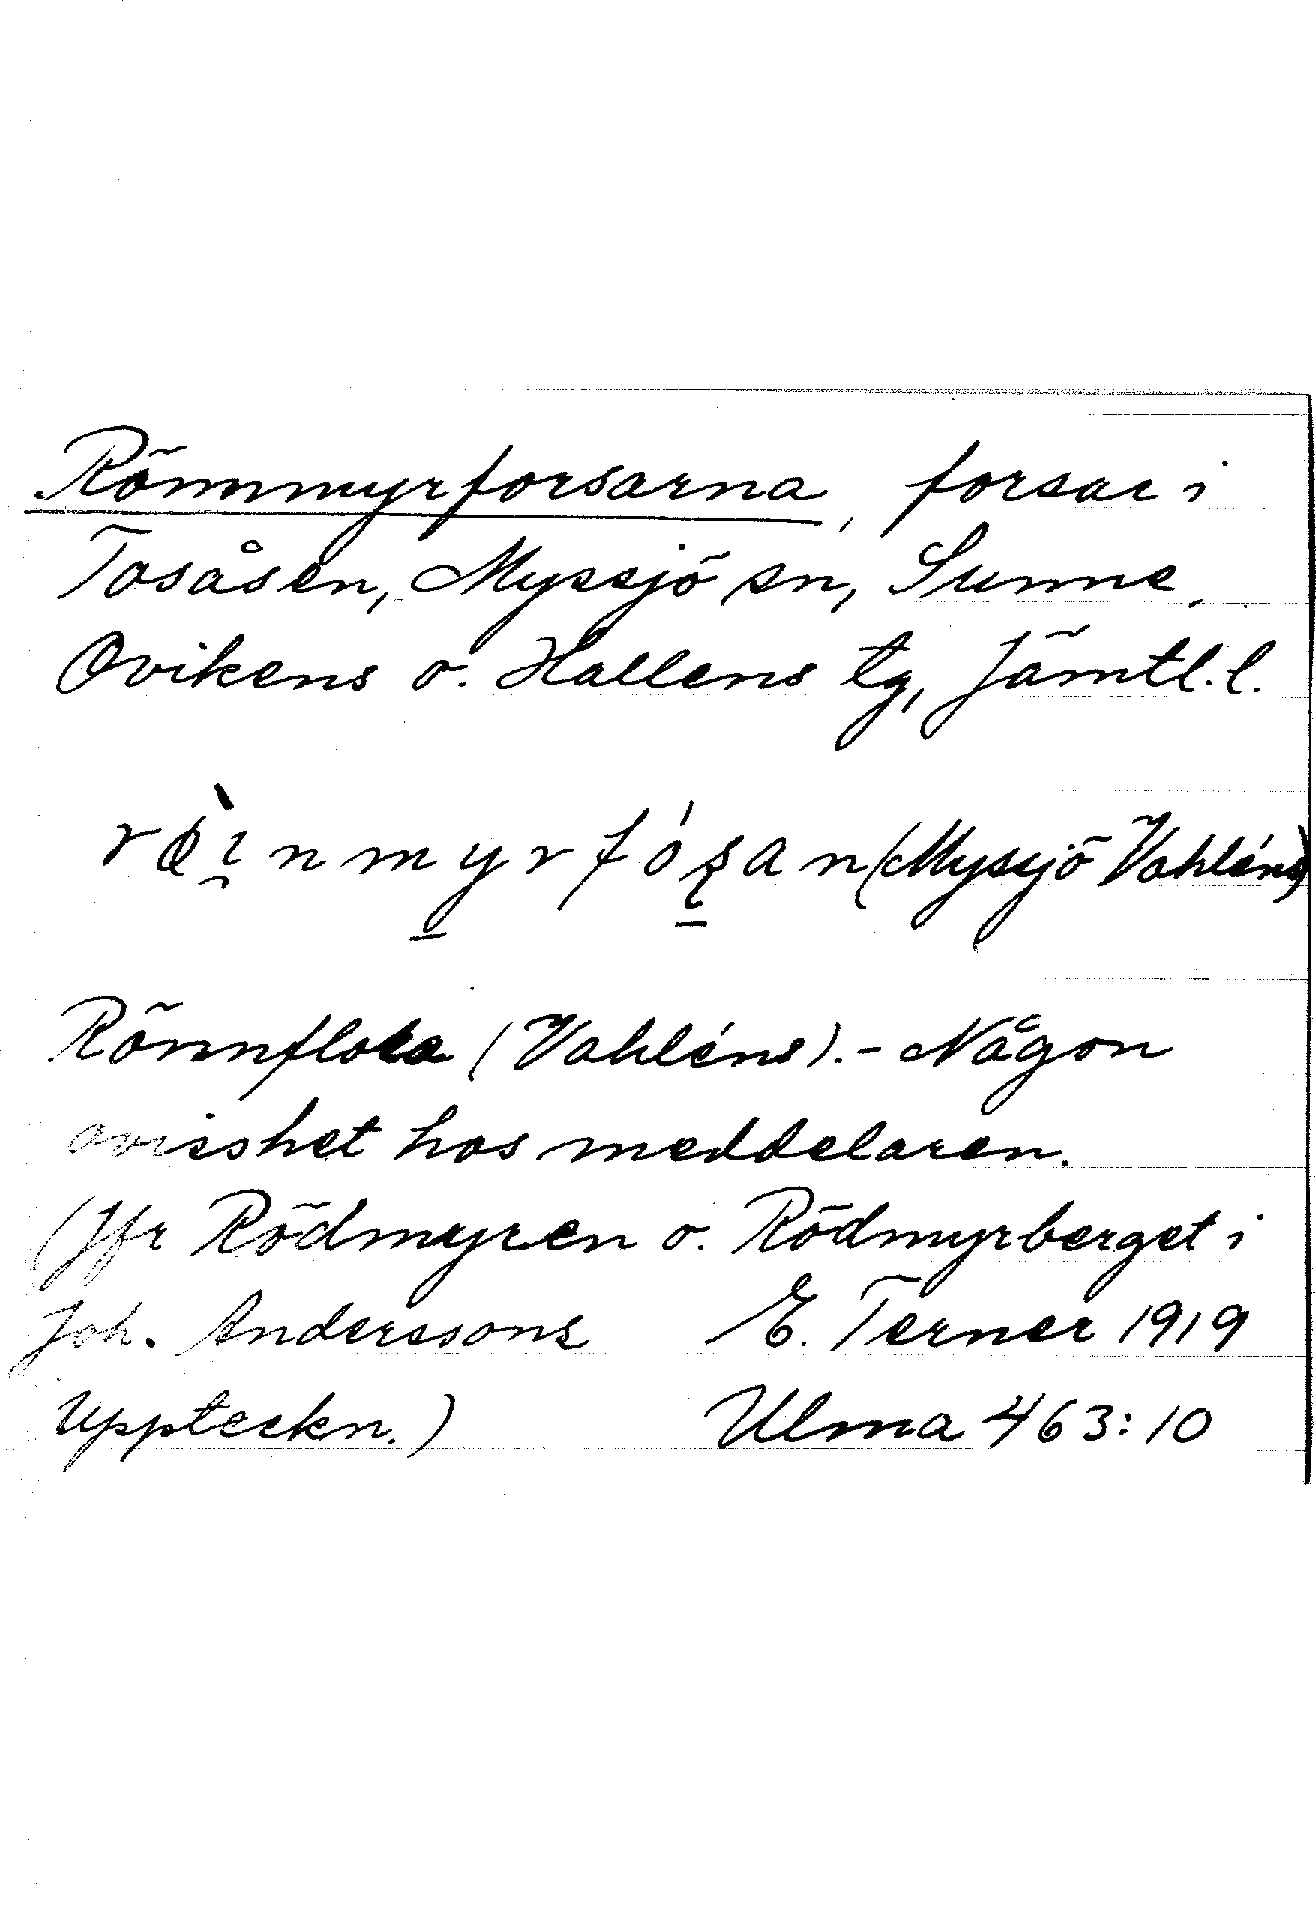 Rönnmyrforsarna, forsar i
Tosåsen, Myssjö sn, Sunne,
Ovikens o. Hallens tg, Jämtl.l.
rø̀i̯nmyrfóʂan (Mysjö Vahléns)
Rönnflota (Vahléns). - Någon
ovisshet hos meddelaren.
(Jfr Rödmyren o. Rödmyrberget i
Joh. Anderssons E. Terner 1919
Uppteckn.) Ulma 463:10